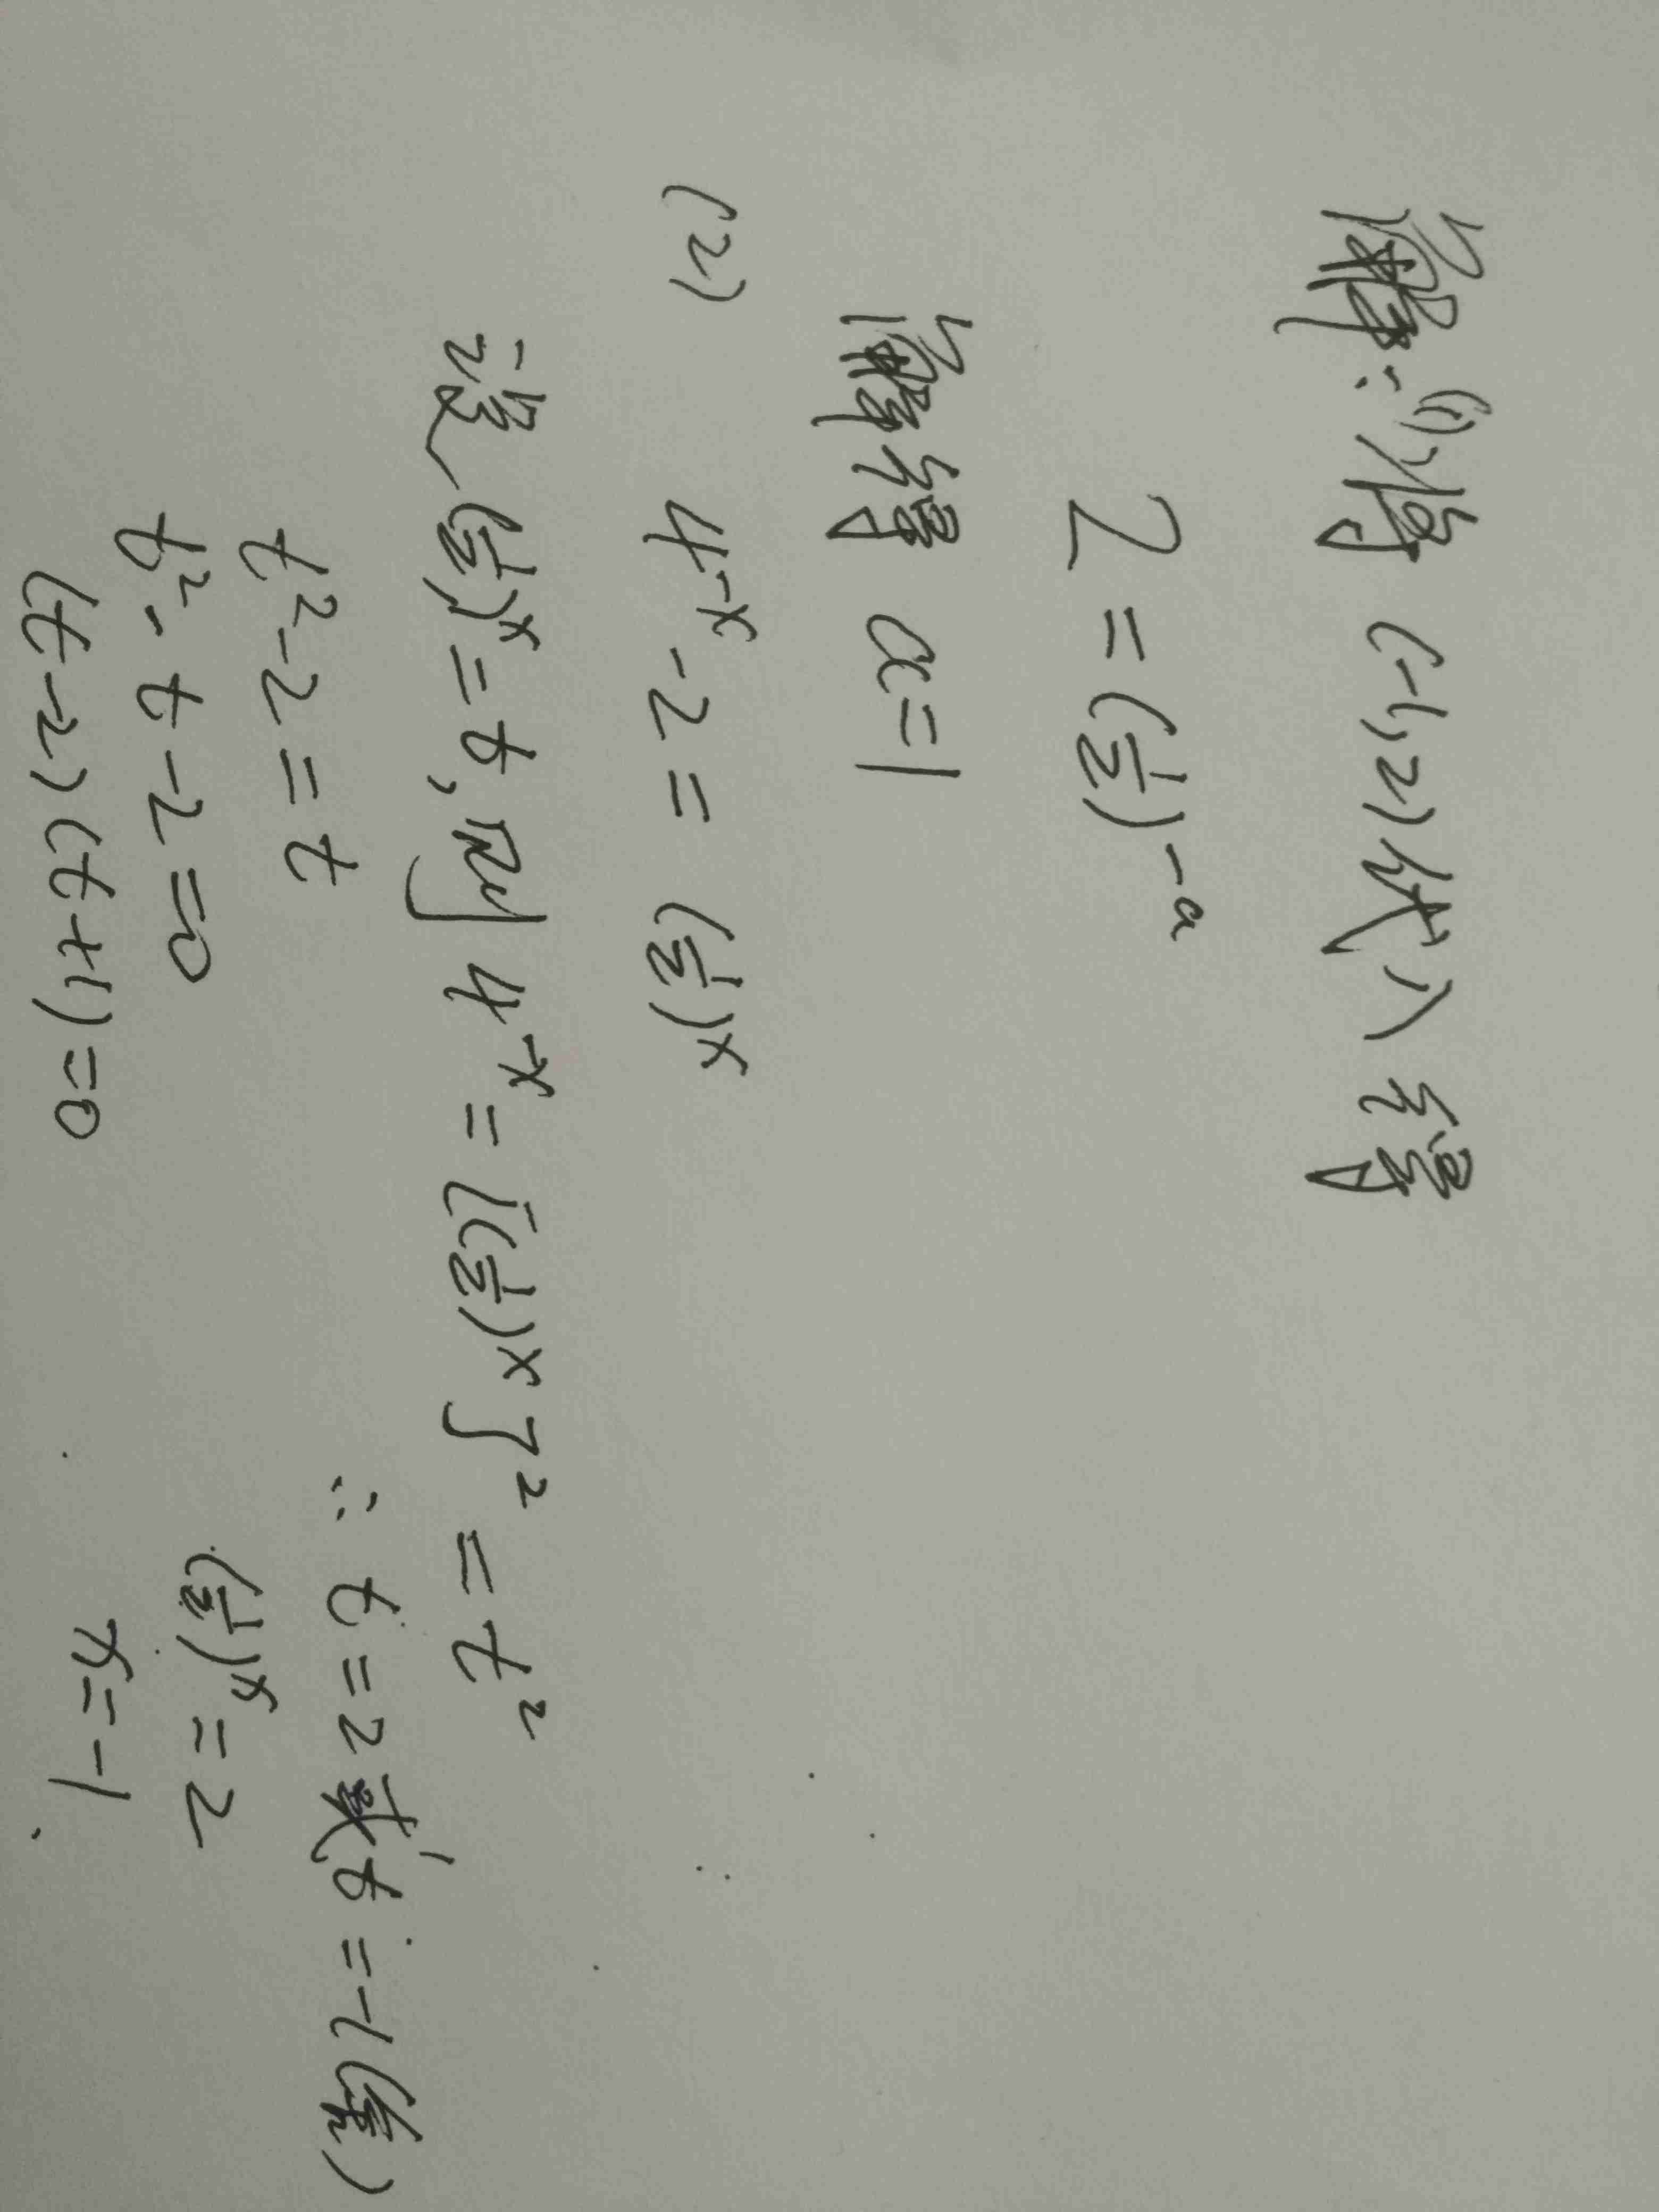 解:(1)将(-1,2)代入得
2=(1/2)^-a
解得 a=1
(2) 4^-x-2=(1/2)^x
设(1/2)^x=t,则4^-x=[(1/2)^x]^2=t^2
t^2-2=t
t^2-t-2=0
(t-2)(t+1)=0
∴t=2或t=-1(舍)
(1/2)^x=2
x=-1